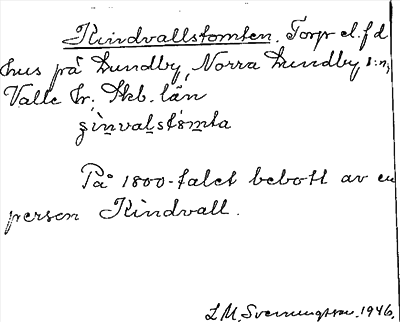 Kindvallstomten. Torp el. f d
hus på Lundby, Norra Lundby s:n,
Valle hr; Skb. län
På 1800-talet bebott av en
person Kindvall.
L.M. Svenungsson. 1946.